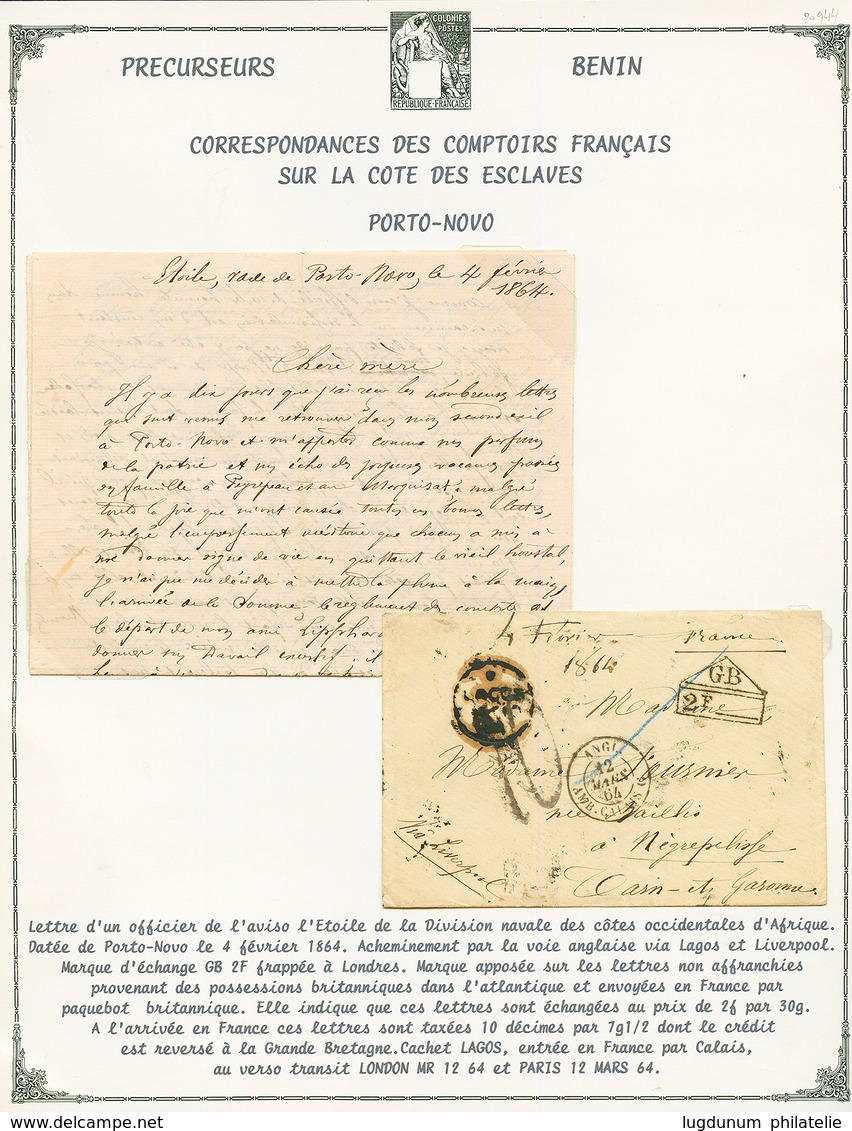 20944
COLONIES
POSTES
REPUBLIQUE-FRANÇAISE
PRECURSEURS BENIN
CORRESPONDANCES DES COMPTOIRS FRANÇAIS
SUR LA COTE DES ESCLAVES
PORTO-NOVO
Etoile, rade de Porto-Novo, le 4 février
1864.
Chère mère
Il y a dix jours que j'ai reçu les nombreuses lettres
qui sont venues me retrouver dans mon second exil
à Porto-Novo et m'apporter comme un parfum
de la patrie et un écho des joyeuses vacances passées
en famille à et au malgré
toute la joie que m'ont causée toutes ces bonnes lettres,
malgré l'empressement méritoire que chacun a mis à
me donner signe de vie en quittant le vieil houstal,
je n'ai pu me décider à mettre la plume à la main,
l'arrivée de la le règlement des comptes et
le départ de mon ami
donner un travail excessif, il
4 Février France
1864
GB
2F
LAGOS
à Madame
Madame Fournier
née
ANGL.
12
MARS
64
AMB. CALAIS
à Nègrepelisse
Via Liverpool
Tarn-et-Garonne.
Lettre d'un officier de l'aviso l'Etoile de la Division navale des côtes occidentales d'Afrique.
Datée de Porto-Novo le 4 février 1864. Acheminement par la voie anglaise via Lagos et Liverpool.
Marque d'échange GB 2F frappée à Londres. Marque apposée sur les lettres non affranchies
provenant des possessions britanniques dans l'atlantique et envoyées en France par
paquebot britannique. Elle indique que ces lettres sont échangées au prix de 2f par 30g.
A l'arrivée en France ces lettres sont taxées 10 décimes par 7g1/2 dont le crédit
est reversé à la Grande Bretagne.Cachet LAGOS, entrée en France par Calais,
au verso transit LONDON MR 12 64 et PARIS 12 MARS 64.
lugdunum philatelie